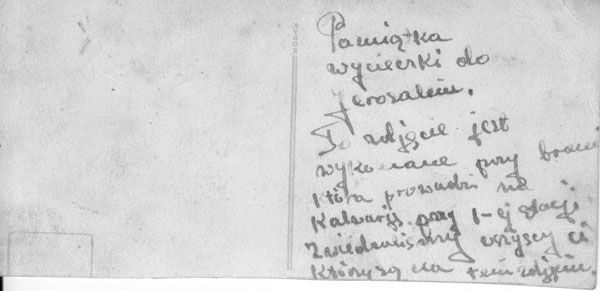 Pamiątka
wycieczki do
Jerozalem.
To zdjęcie jest
wykonane przy bramie
która prowadzi na
Kalwarji przy 1-ej stacji
Zwiedzaliśmy wszyscy ci
którzy są na tem zdjęciu.